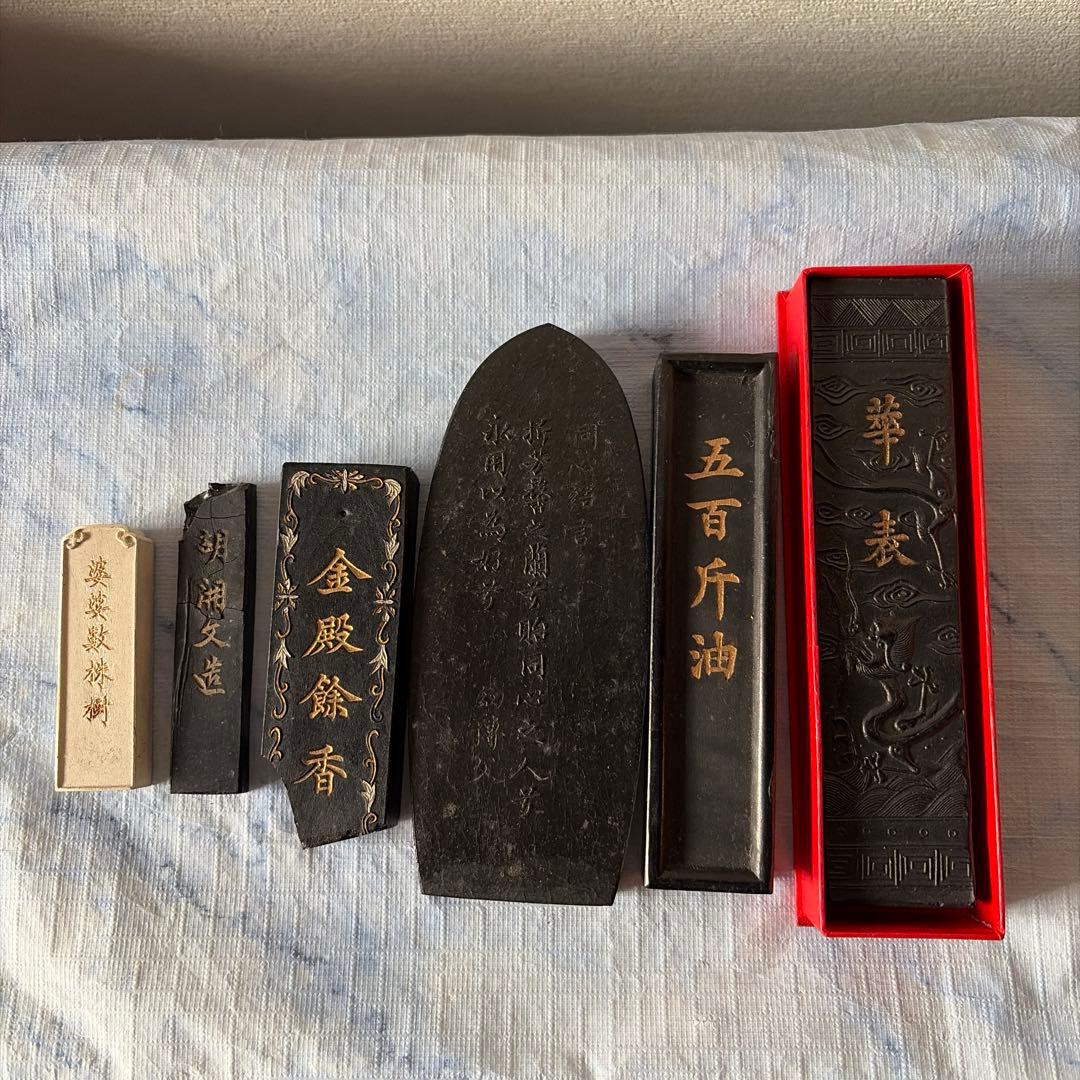 婆婆數株樹
胡開文造
金殿餘香
同心結言
折芳馨之蘭兮貽同心之人兮
永用以為好兮
五百斤油
華表